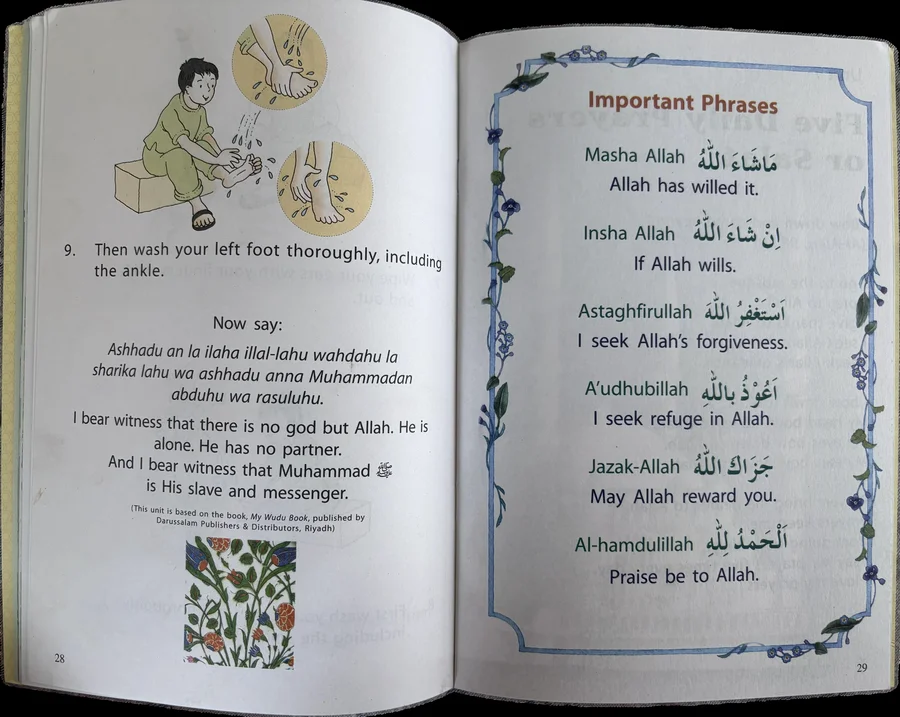 9. Then wash your left foot thoroughly, including
the ankle.
Now say:
Ashhadu an la ilaha illal-lahu wahdahu la
sharika lahu wa ashhadu anna Muhammadan
abduhu wa rasuluhu.
I bear witness that there is no god but Allah. He is
alone. He has no partner.
And I bear witness that Muhammad ﷺ
is His slave and messenger.
(This unit is based on the book, My Wudu Book, published by
Darussalam Publishers & Distributors, Riyadh)
28
Important Phrases
Masha Allah مَاشَاءَ اللّٰهُ
Allah has willed it.
Insha Allah اِنْ شَاءَ اللّٰهُ
If Allah wills.
Astaghfirullah اَسْتَغْفِرُ اللّٰهَ
I seek Allah's forgiveness.
A'udhubillah اَعُوْذُ بِاللّٰهِ
I seek refuge in Allah.
Jazak-Allah جَزَاكَ اللّٰهُ
May Allah reward you.
Al-hamdulillah اَلْحَمْدُ لِلّٰهِ
Praise be to Allah.
29